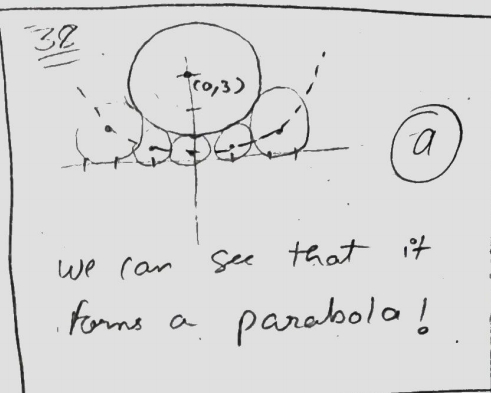 38
(0,3)
a
we can see that it
forms a parabola!